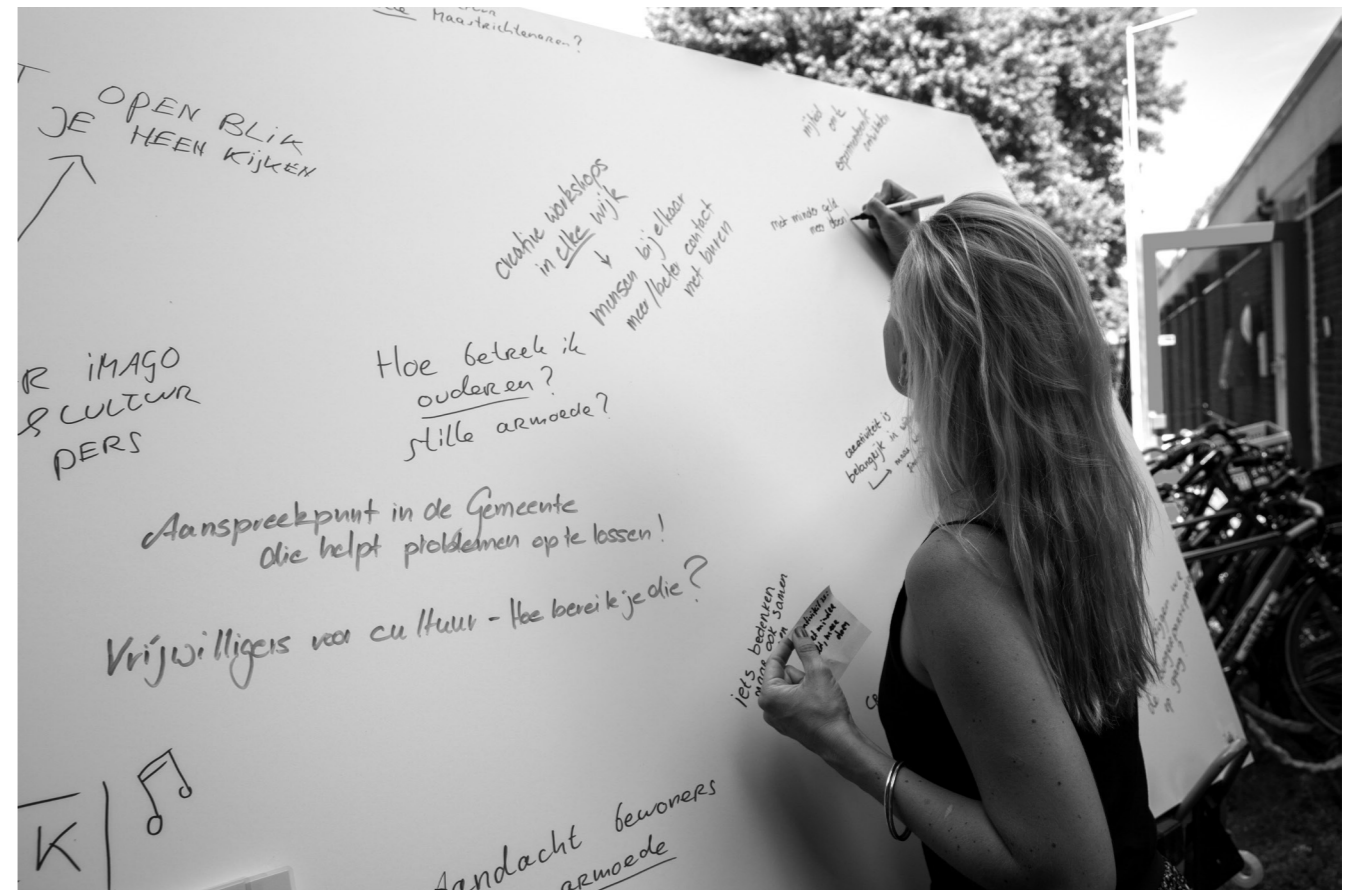 Maastrichtenaren?
OPEN BLIK
JE HEEN KIJKEN
creative workshops
in elke wijk
↓
mensen bij elkaar
meer/beter contact
met buren
met minder geld
meer doen
R IMAGO
& CULTUUR
PERS
Hoe betrek ik
ouderen?
stille armoede?
creativiteit is
belangrijk in
Aanspreekpunt in de Gemeente
die helpt problemen op te lossen!
Vrijwilligers voor cultuur - Hoe bereik je die?
iets bedenken
maar ook samen
minder
meer
doen
K
Aandacht bewoners
armoede